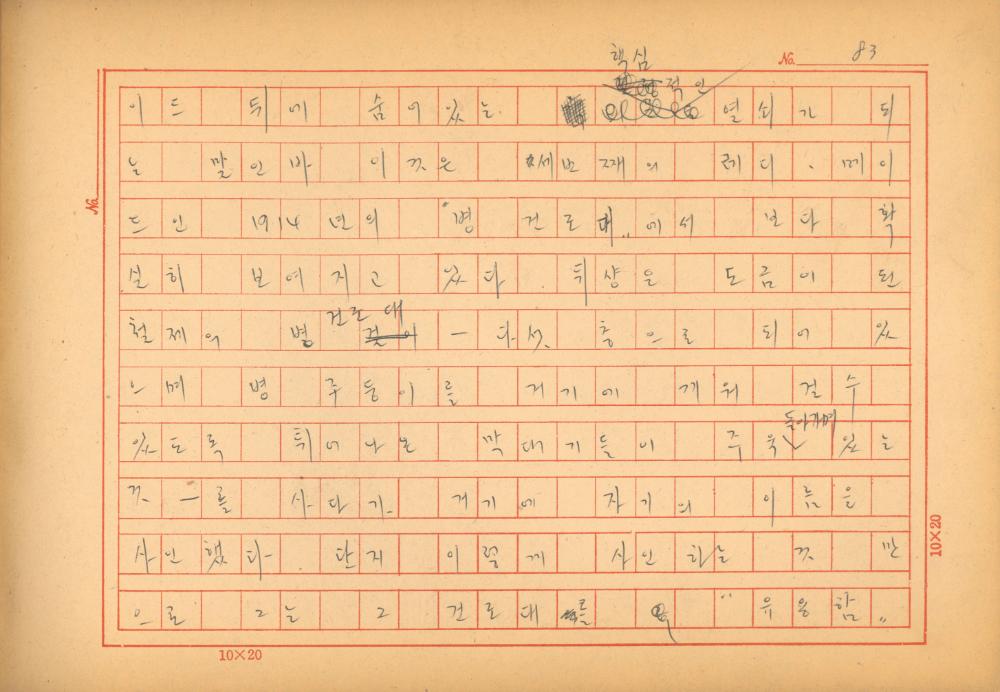 No. 83
핵심
적인
이드 뒤에 숨어있는 열쇠가 되
는 말인바 이것은 세번째의 레디·메이
드인 1914년의 "병 건로대"에서 보다 확
실히 보여지고 있다. 뒤샹은 도금이 된
건로대
철제의 병 — 다섯 층으로 되어 있
으며 병 주둥이를 거기에 끼워 걸 수
돌아가며
있도록 튀어나온 막대기들이 주욱 있는
것 —를 사다가 거기에 자기의 이름을
사인했다. 단지 이렇게 사인하는 것만
으로 그는 그 건로대를 "유용함"
No.
10×20
10×20